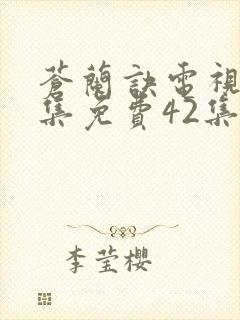 蒼蘭訣電視
集免費42集
李莹櫻